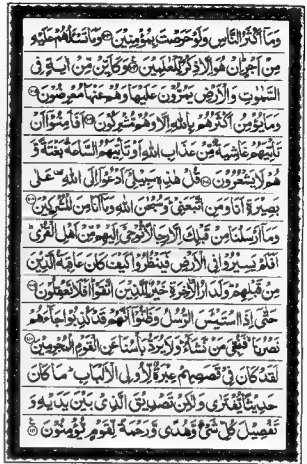 وَمَا أَكْثَرُ النَّاسِ وَلَوْ حَرَصْتَ بِمُؤْمِنِينَ ۝ وَمَا تَسْأَلُهُمْ عَلَيْهِ
مِنْ أَجْرٍ إِنْ هُوَ إِلَّا ذِكْرٌ لِلْعَالَمِينَ ۝ وَكَأَيِّنْ مِنْ آيَةٍ فِي
السَّمٰوٰتِ وَالْأَرْضِ يَمُرُّونَ عَلَيْهَا وَهُمْ عَنْهَا مُعْرِضُونَ ۝
وَمَا يُؤْمِنُ أَكْثَرُهُمْ بِاللهِ إِلَّا وَهُمْ مُشْرِكُونَ ۝ أَفَأَمِنُوا أَنْ
تَأْتِيَهُمْ غَاشِيَةٌ مِنْ عَذَابِ اللهِ أَوْ تَأْتِيَهُمُ السَّاعَةُ بَغْتَةً وَ
هُمْ لَا يَشْعُرُونَ ۝ قُلْ هٰذِهِ سَبِيلِي أَدْعُو إِلَى اللهِ عَلَى
بَصِيرَةٍ أَنَا وَمَنِ اتَّبَعَنِي وَسُبْحٰنَ اللهِ وَمَا أَنَا مِنَ الْمُشْرِكِينَ ۝
وَمَا أَرْسَلْنَا مِنْ قَبْلِكَ إِلَّا رِجَالًا نُوحِي إِلَيْهِمْ مِنْ أَهْلِ الْقُرَى
أَفَلَمْ يَسِيرُوا فِي الْأَرْضِ فَيَنْظُرُوا كَيْفَ كَانَ عَاقِبَةُ الَّذِينَ
مِنْ قَبْلِهِمْ وَلَدَارُ الْآخِرَةِ خَيْرٌ لِلَّذِينَ اتَّقَوْا أَفَلَا تَعْقِلُونَ ۝
حَتَّى إِذَا اسْتَيْئَسَ الرُّسُلُ وَظَنُّوا أَنَّهُمْ قَدْ كُذِبُوا جَاءَهُمْ
نَصْرُنَا فَنُجِّيَ مَنْ نَشَاءُ وَلَا يُرَدُّ بَأْسُنَا عَنِ الْقَوْمِ الْمُجْرِمِينَ ۝
لَقَدْ كَانَ فِي قَصَصِهِمْ عِبْرَةٌ لِأُولِي الْأَلْبَابِ مَا كَانَ
حَدِيثًا يُفْتَرَى وَلٰكِنْ تَصْدِيقَ الَّذِي بَيْنَ يَدَيْهِ وَ
تَفْصِيلَ كُلِّ شَيْءٍ وَهُدًى وَرَحْمَةً لِقَوْمٍ يُؤْمِنُونَ ۝